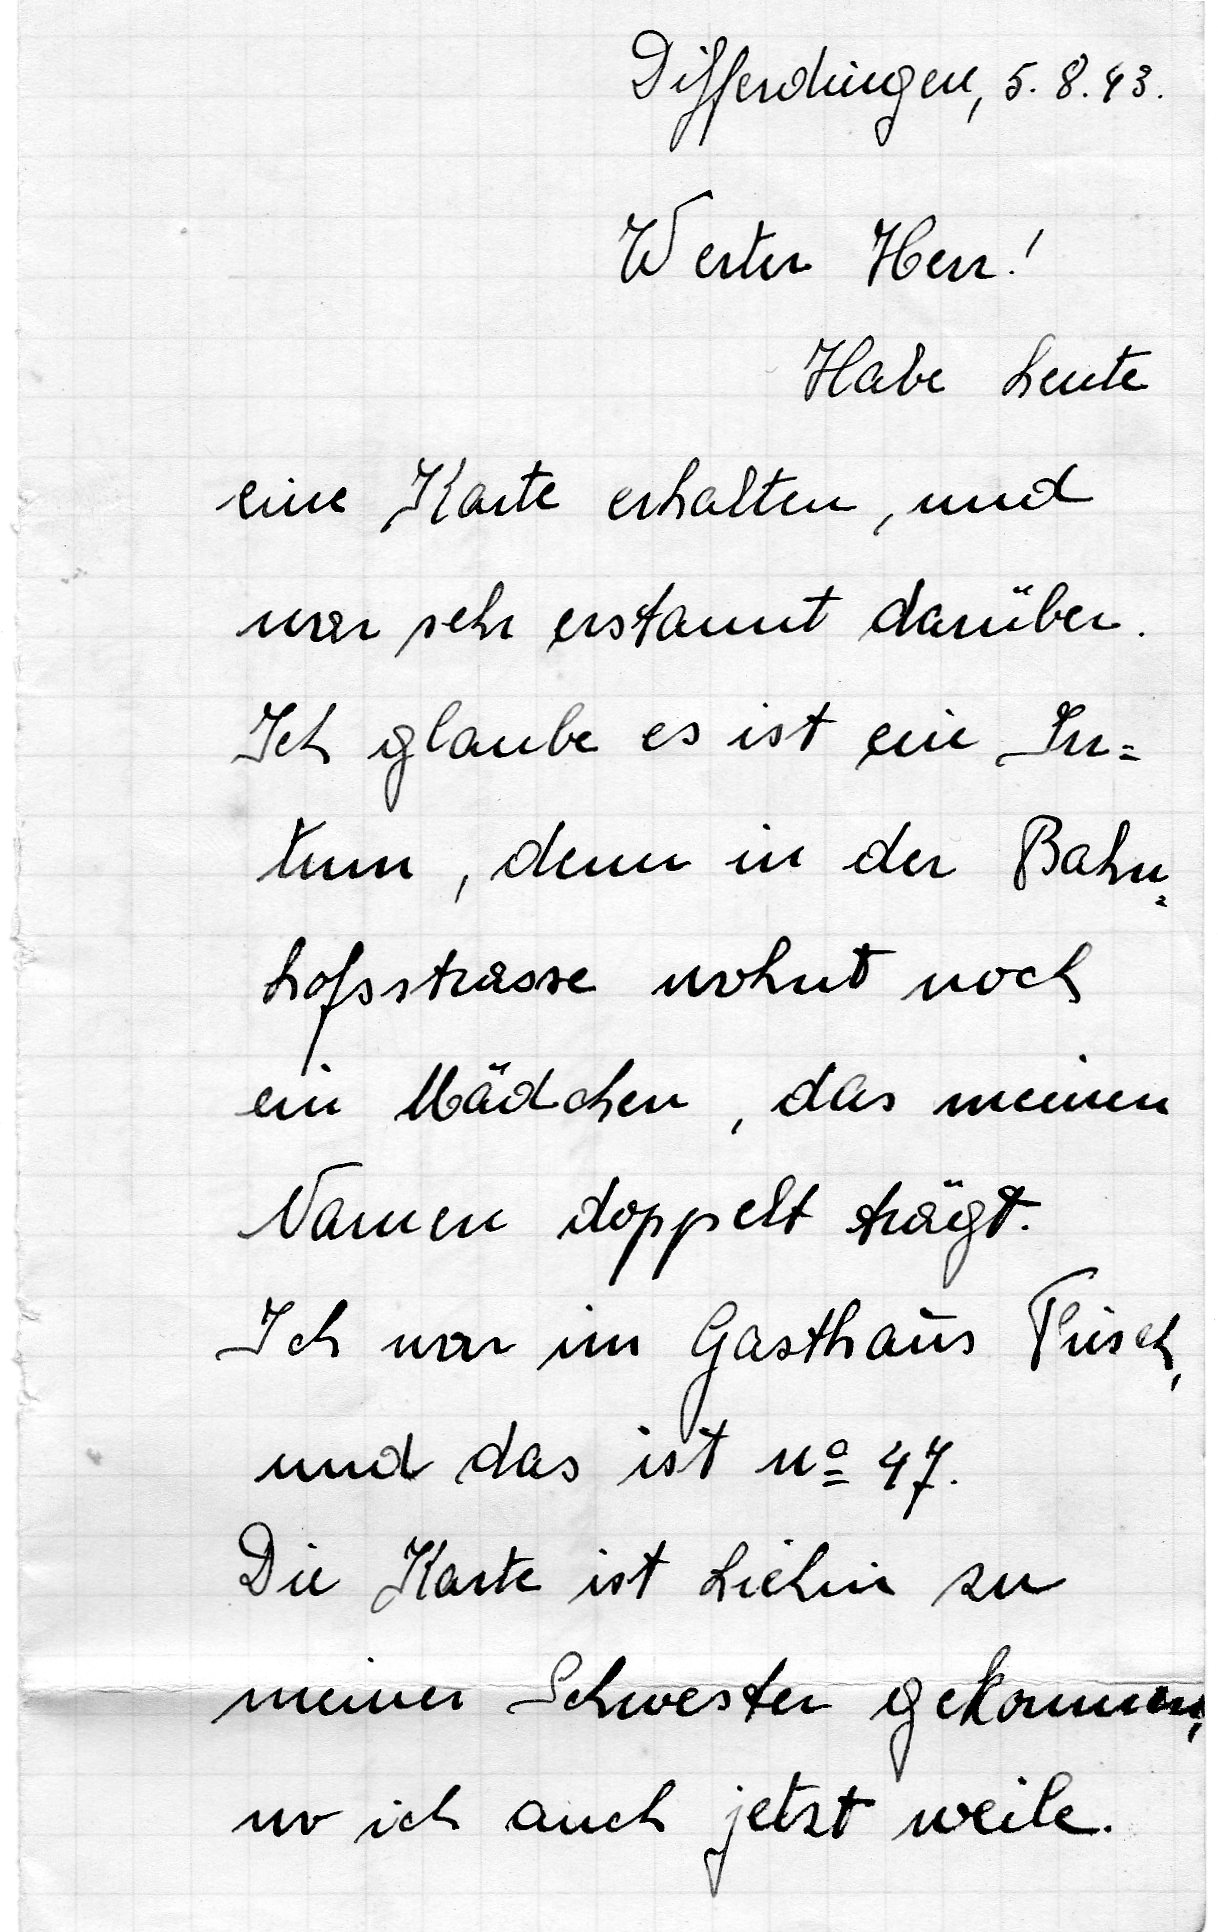 Differdingen, 5. 8. 43.
Werter Herr!
Habe heute
eine Karte erhalten, und
war sehr erstaunt darüber.
Ich glaube es ist ein Irr=
tum, denn in der Bahn=
hofsstrasse wohnt noch
ein Mädchen, das meinen
Namen doppelt trägt.
Ich war im Gasthaus
und das ist no 47.
Die Karte ist hiehin zu
meiner Schwester gekommen,
wo ich auch jetzt weile.